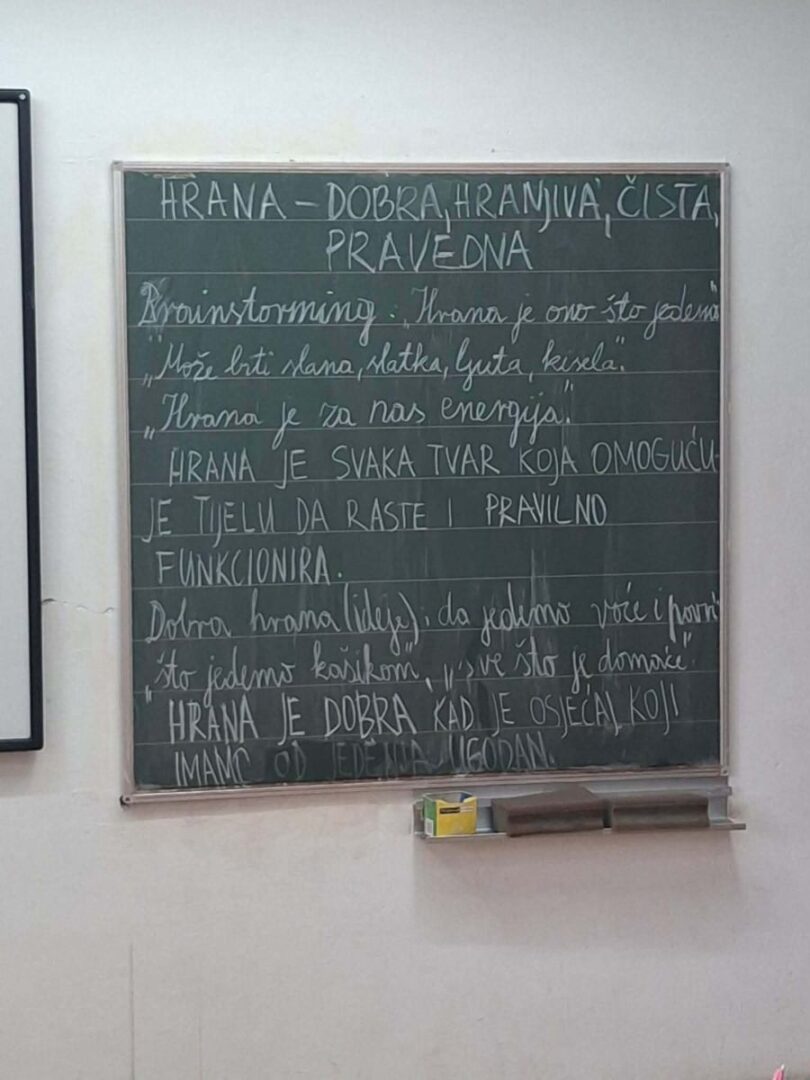 HRANA – DOBRA, HRANJIVA, ČISTA,
PRAVEDNA
Brainstorming: „Hrana je ono što jedemo"
„Može biti slana, slatka, ljuta, kisela".
„Hrana je za nas energija."
HRANA JE SVAKA TVAR KOJA OMOGUĆU-
JE TIJELU DA RASTE I PRAVILNO
FUNKCIONIRA.
Dobra hrana (ideje): da jedemo voće i povrć
„što jedemo kašikom", „sve što je domaće".
HRANA JE DOBRA KAD JE OSJEĆAJ KOJI
IMAMO OD JEDENJA UGODAN.